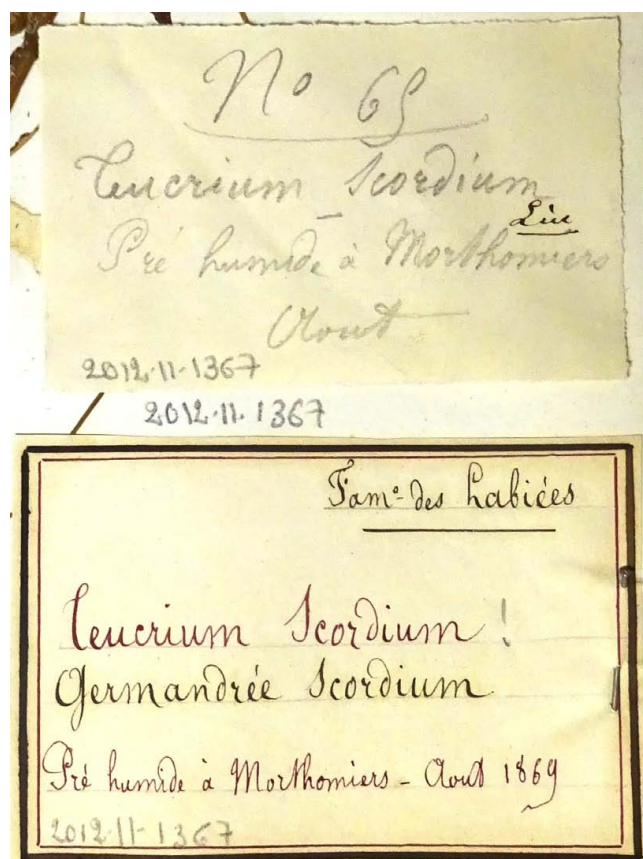 No 65
Teucrium Scordium
Lin
Pré humide à Morthomiers
Aout
2012.11.1367
2012.11.1367
Fam.e des Labiées
Teucrium Scordium !
Germandrée Scordium
Pré humide à Morthomiers - Aout 1869
2012-11-1367